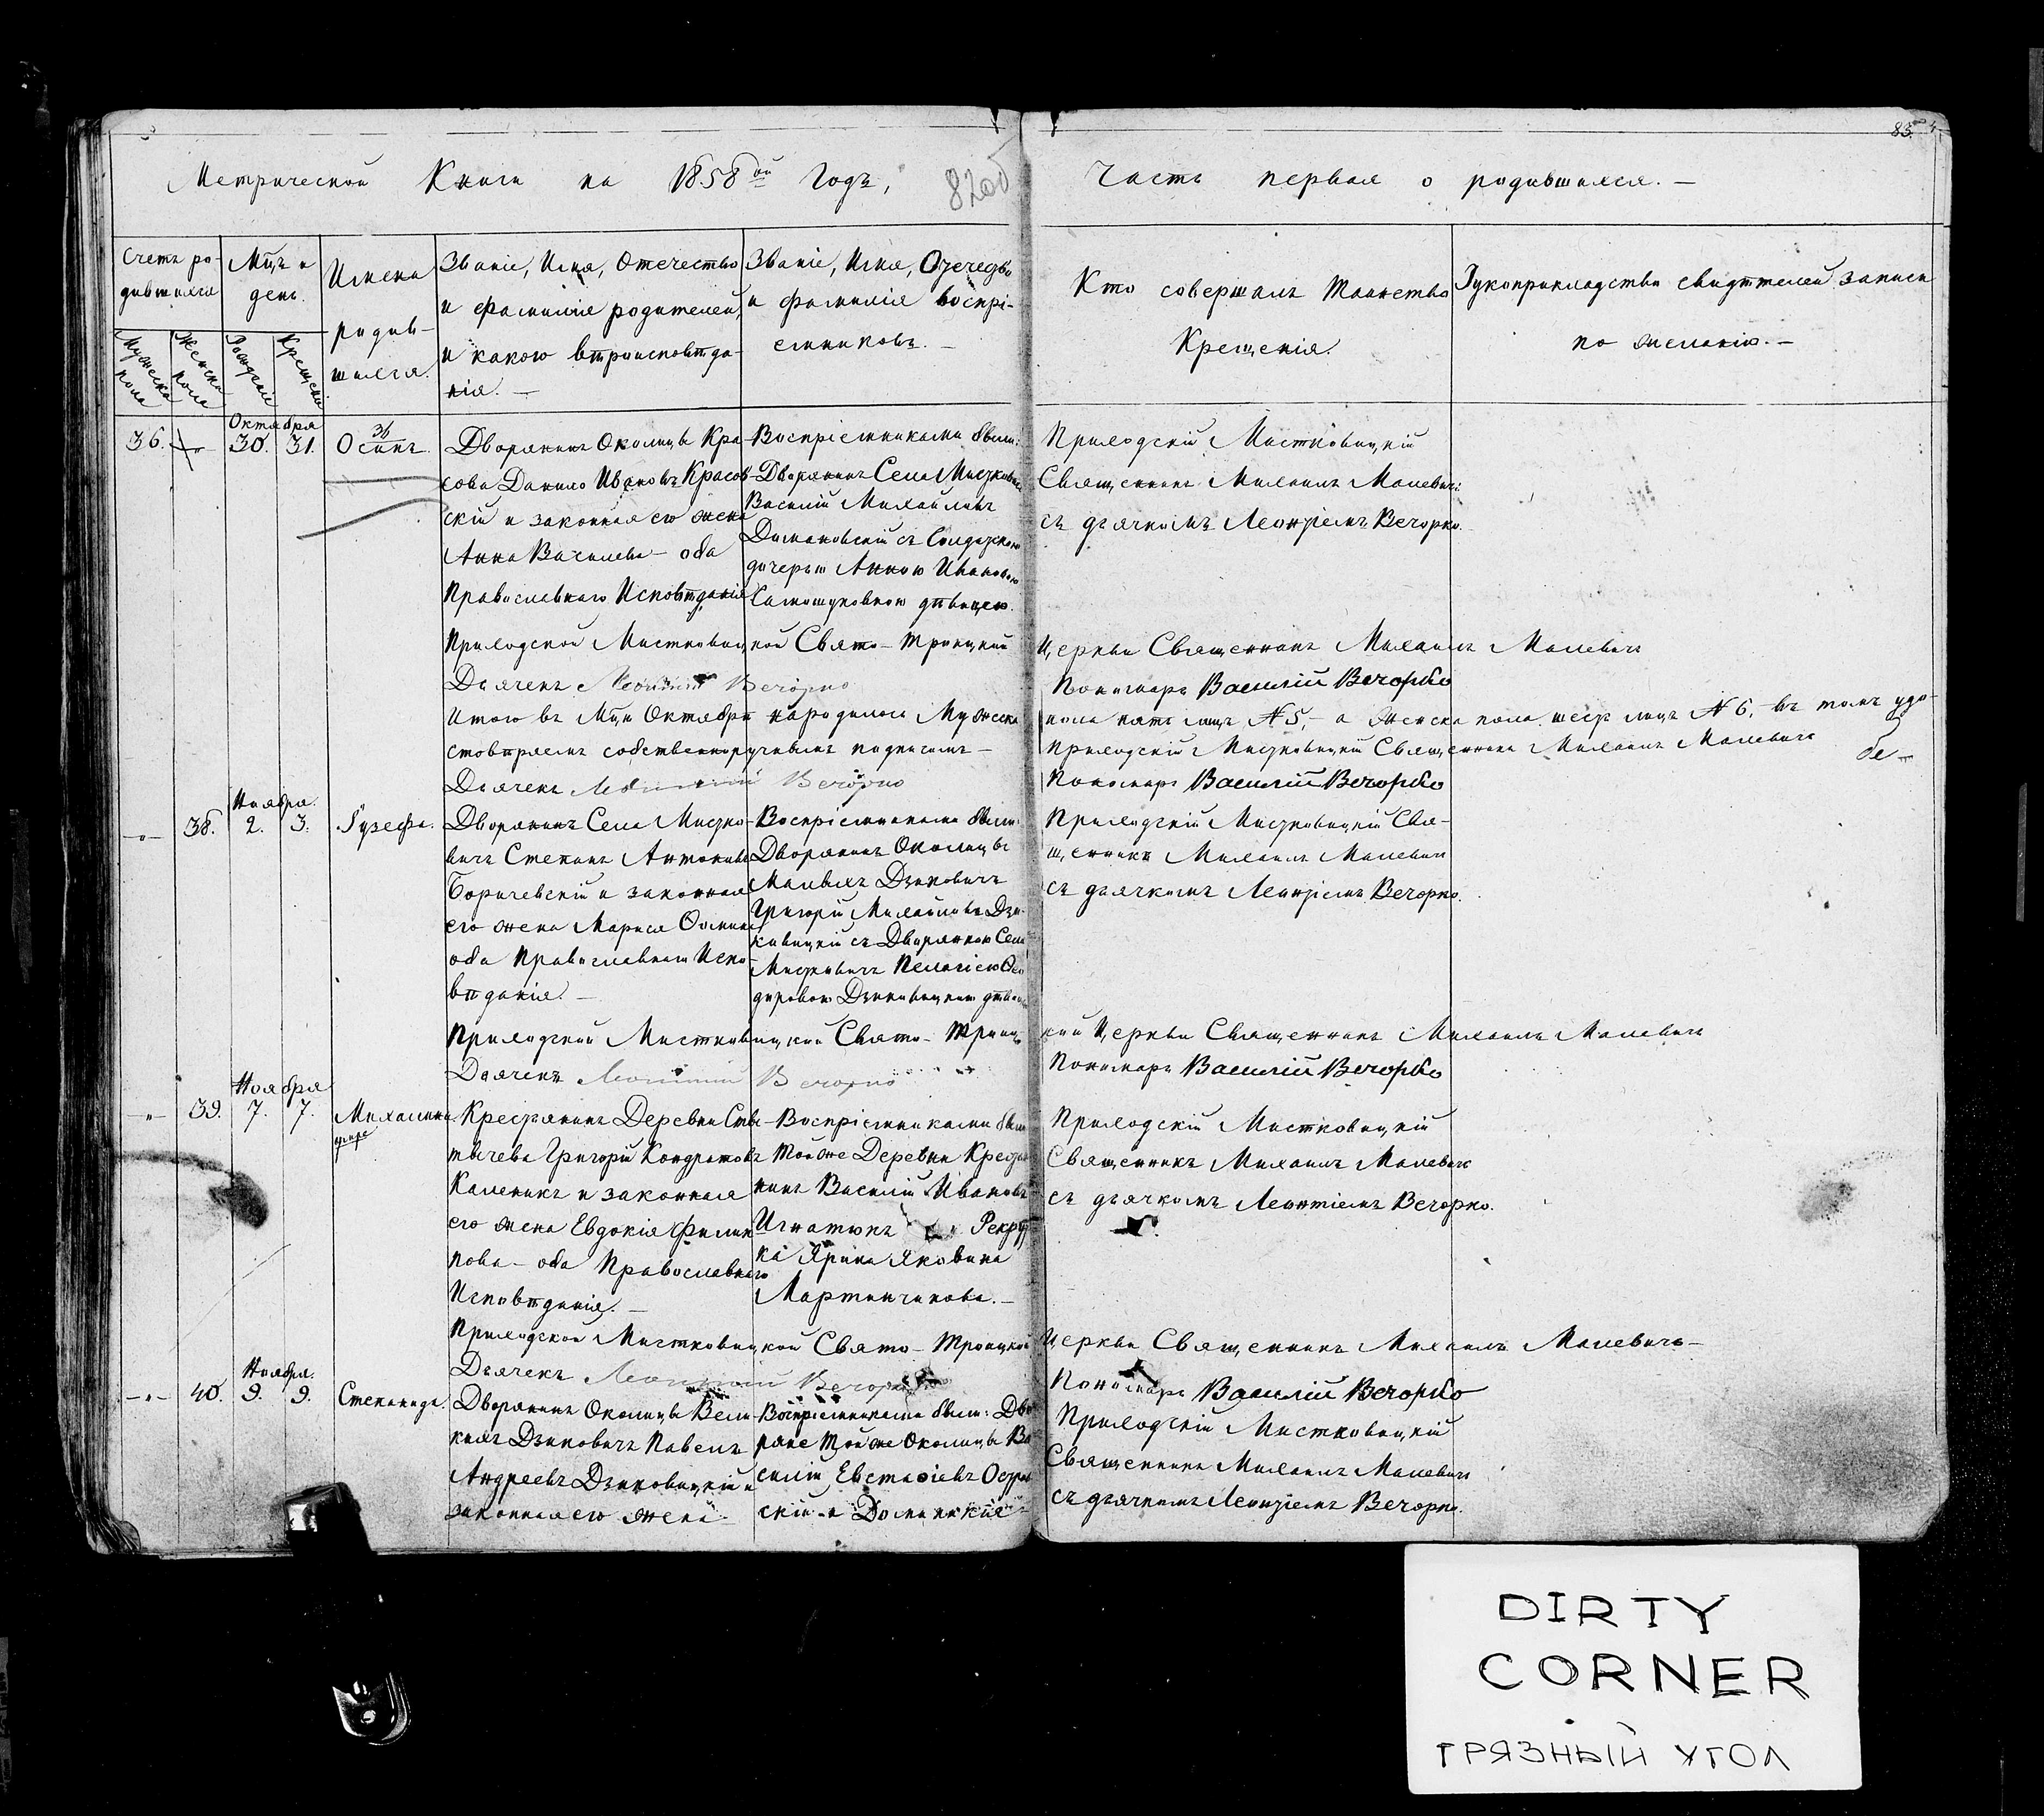 Метрической Книги на 1858ой Годъ,
82об
Часть первая о родившихся. —
83.
Счетъ ро-
дившихся
Мужеска пола
Женска пола
Мцъ и
день.
Рожденія
Крещенія
Имена
родив-
шихся.
Званіе, Имя, Отечество
и фамилія родителей,
и какого вѣроисповѣда-
нія. —
Званіе, Имя, Отечество
и фамилія воспрі-
емниковъ. —
Кто совершалъ Таинство
Крещенія.
Рукоприкладство свидѣтелей записи
по желанію. —
Октября
36. 30. 31. Осипъ.
Дворянинъ Околицы Кра
сова Данило Ивановъ Красов-
скій и законная его жена
Анна Васильева — оба
Православнаго Исповѣданія
Воспріемниками были:
Дворянинъ Села
Василій Михайловъ
съ Солдатскою
дочерью Анною Ивановою
дѣвицею.
Приходскій Мистковицкій
Священникъ Михаилъ Малевичъ
съ дьячкомъ Леонтіемъ Вечорко.
Приходской Мистковицкой Свято-Троицкой Церкви Священникъ Михаилъ Малевичъ
Дьячекъ Леонтій Вечорко Пономарь Василій Вечорко
Итого въ Мцѣ Октябрѣ народилось Мужеска пола пять лицъ №5, — а Женска пола шесть лицъ №6. въ томъ удо-
стовѣряемъ собственноручнымъ подписомъ — Приходскій Мистковицкій Священникъ Михаилъ Малевичъ
Дьячекъ Леонтій Вечорко Пономарь Василій Вечорко
Ноября.
38. 2. 3. Іузефа.
Дворянинъ Села Мистко-
вичъ Степанъ Антоновъ
Боричевскій и законная
его жена Марися Осипова
оба Православнаго Испо-
вѣданія. —
Воспріемниками были:
Дворянинъ Околицы
Малыхъ Дзиковичъ
Григорій Михайловъ Дзи-
ковицкій съ Дворянкою Села
Мистковичъ Пелагіею Ѳео
доровою Дзиковицкою дѣвицею
Приходскій Мистковицкій Свя-
щенникъ Михаилъ Малевичъ
съ дьячкомъ Леонтіемъ Вечорко.
Приходской Мистковицкой Свято-Троицкой Церкви Священникъ Михаилъ Малевичъ
Дьячекъ Леонтій Вечорко Пономарь Василій Вечорко
Ноября
39. 7. 7. Михалина
Крестьянинъ Деревни Ста
тычева Григорій Кондратовъ
Каленикъ и законная
его жена Евдокія Филип
пова — оба Православнаго
Исповѣданія. —
Воспріемниками были
Той же Деревни Крестья
нинъ Василій Ивановъ
Игнатюкъ и Рекрут
ка Ярина Яковина
Мартинчикова. —
Приходскій Мистковицкій
Священникъ Михаилъ Малевичъ
съ дьячкомъ Леонтіемъ Вечорко.
Приходской Мистковицкой Свято-Троицкой Церкви Священникъ Михаилъ Малевичъ —
Дьячекъ Леонтій Вечорко Пономарь Василій Вечорко
Ноября.
40. 9. 9. Степанида.
Дворянинъ Околицы Вели
кихъ Дзиковичъ Павелъ
Андреевъ Дзиковицкій и
законная его жена
Воспріемниками были: Дво
ряне Той же Околицы Ва
силій Евстафіевъ Остров
скій и Доминикія
Приходскій Мистковицкій
Священникъ Михаилъ Малевичъ
съ дьячкомъ Леонтіемъ Вечорко.
DIRTY
CORNER
ГРЯЗНЫЙ УГОЛ